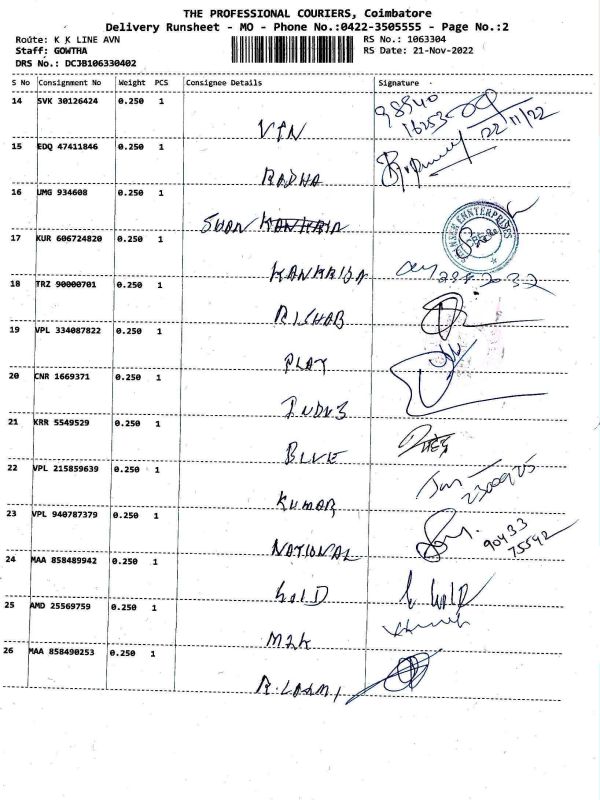 THE PROFESSIONAL COURIERS, Coimbatore
Delivery Runsheet - MO - Phone No.:0422-3505555 - Page No.:2
Route: K K LINE AVN
RS No.: 1063304
Staff: GOWTHA
RS Date: 21-Nov-2022
DRS No.: DCJB106330402
S No Consignment No Weight PCS Consignee Details Signature
14 SVK 30126424 0.250 1
98940
16253
VIN
22/11/22
15 EDQ 47411846 0.250 1
RADHA
16 UMG 934608 0.250 1
17 KUR 606724820 0.250 1
ENNTERPRISES
KANKARIDA
18 TRZ 90000701 0.250 1
RISHAB
19 VPL 334087822 0.250 1
PLAY
20 CNR 1669371 0.250 1
INDUS
21 KRR 5549529 0.250 1
BLUE
22 VPL 215859639 0.250 1
KUMAR
23 VPL 940787379 0.250 1
90433
75542
NATIONAL
24 MAA 858489942 0.250 1
GOLD
25 AMD 25569759 0.250 1
M2K
26 MAA 858490253 0.250 1
R. LAXMI